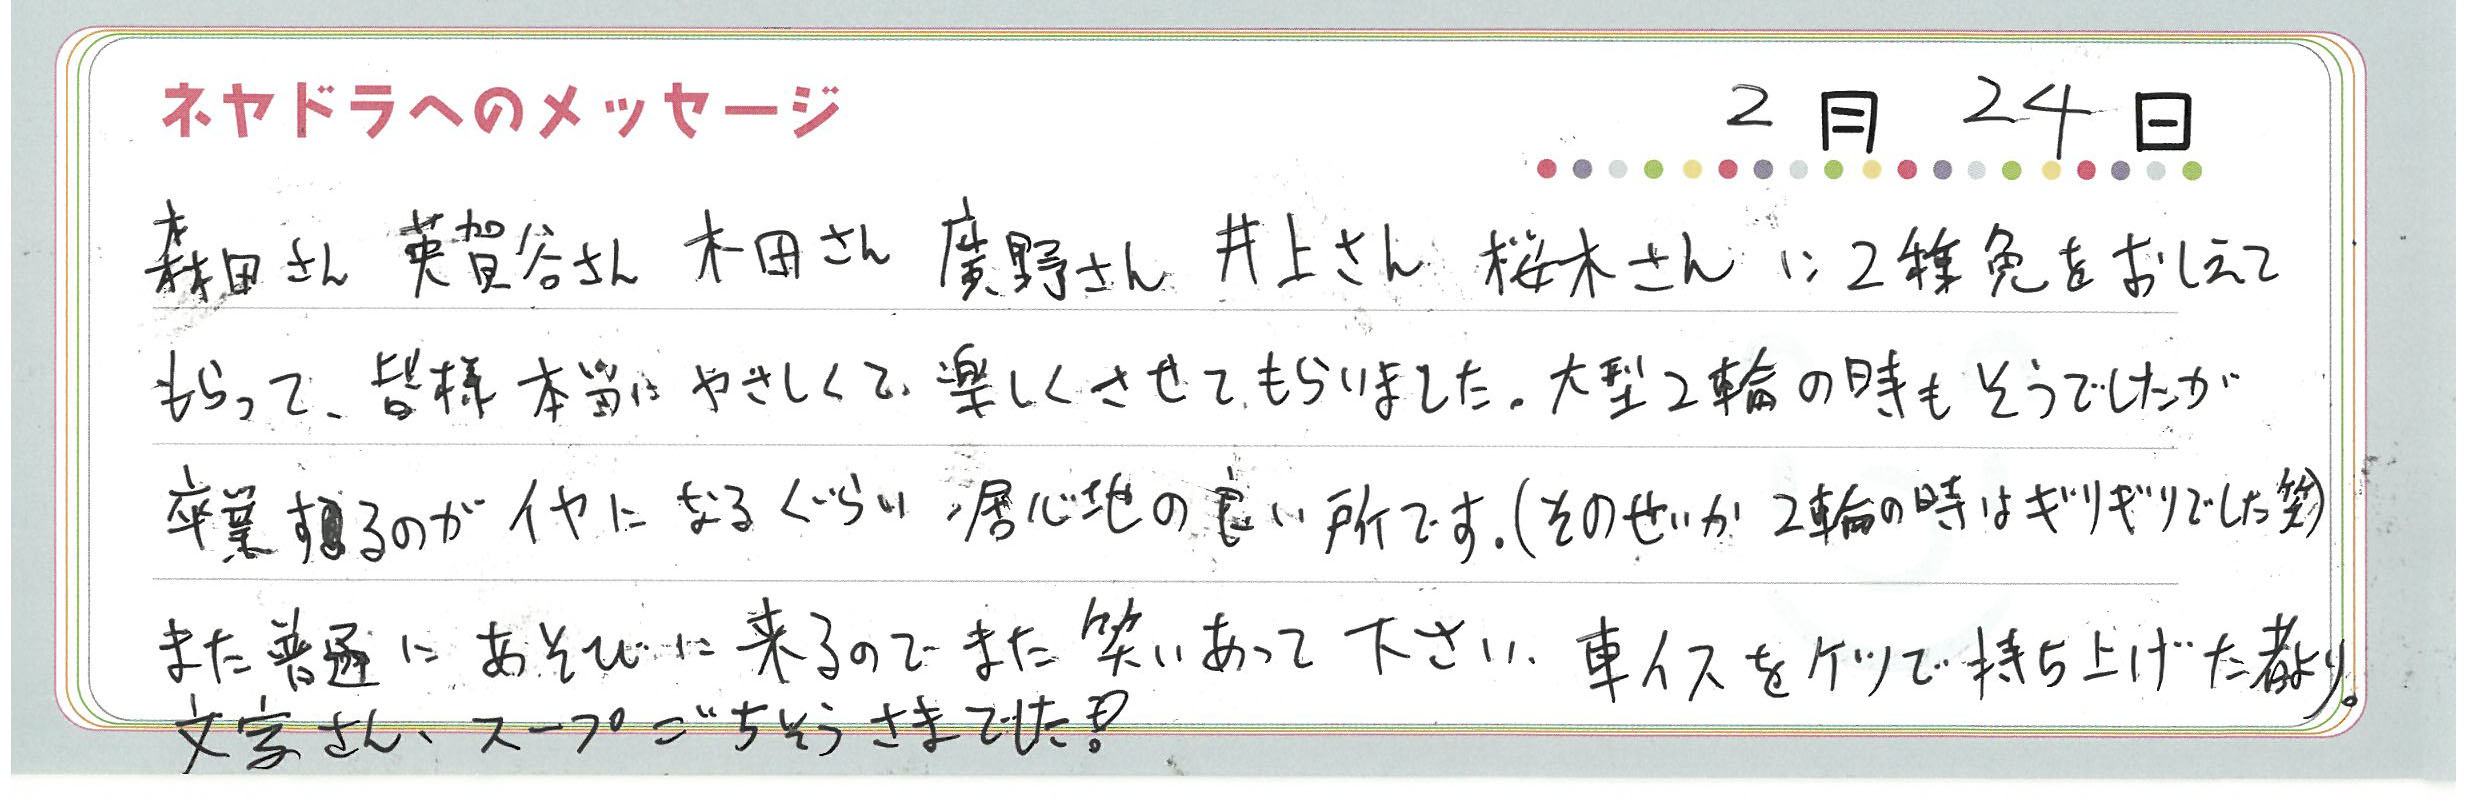 ネヤドラへのメッセージ 2月 24日
森田さん 英賀谷さん 木田さん 廣野さん 井上さん 桜木さん に2種免をおしえて
もらって、皆様 本当に やさしくて、楽しくさせてもらいました。大型2輪の時もそうでしたが
卒業するのが イヤに なるぐらい 居心地の良い 所です。(そのせいか 2輪の時はギリギリでした笑)
また普通に あそびに 来るので また 笑いあって 下さい、車イスをケツで持ち上げた者より。
文字さん、スープごちそうさまでした!